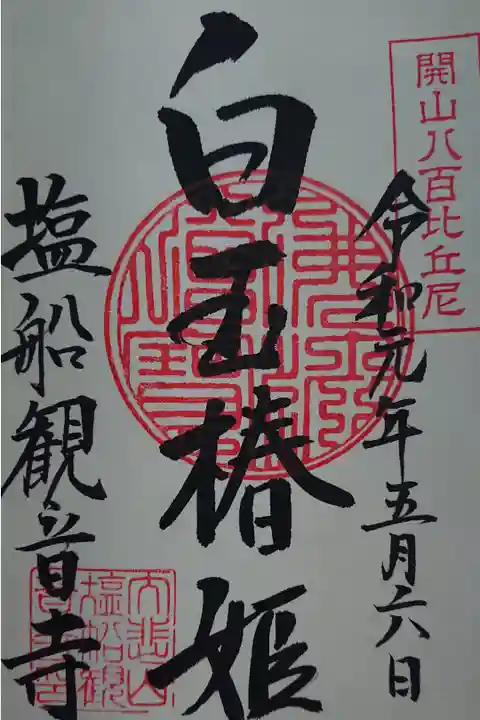 開山八百比丘尼
令和元年五月六日
白玉椿姫
塩船観音寺